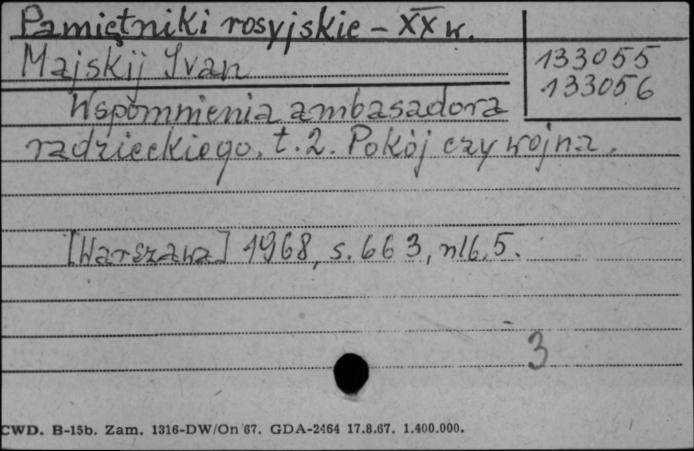 Pamiętniki rosyjskie - XX w.
Majskij Ivan
133055
133056
Wspomnienia ambasadora
radzieckiego. t.2. Pokój czy wojna.
[Warszawa] 1968, s. 663, nlb. 5.
3
CWD. B-15b. Zam. 1316-DW/On 67. GDA-2464 17.8.67. 1.400.000.